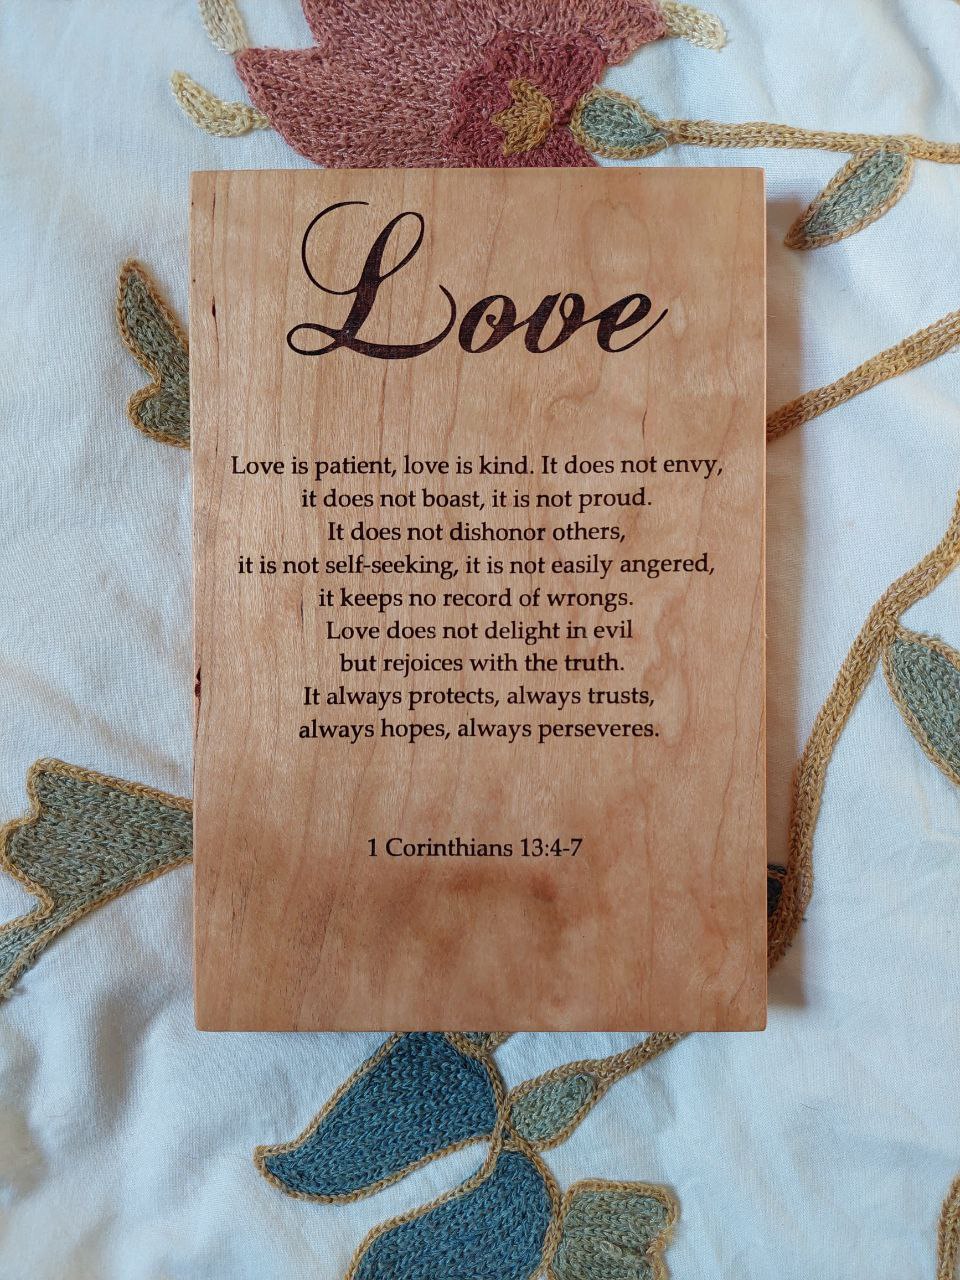 Love
Love is patient, love is kind. It does not envy,
it does not boast, it is not proud.
It does not dishonor others,
it is not self-seeking, it is not easily angered,
it keeps no record of wrongs.
Love does not delight in evil
but rejoices with the truth.
It always protects, always trusts,
always hopes, always perseveres.
1 Corinthians 13:4-7